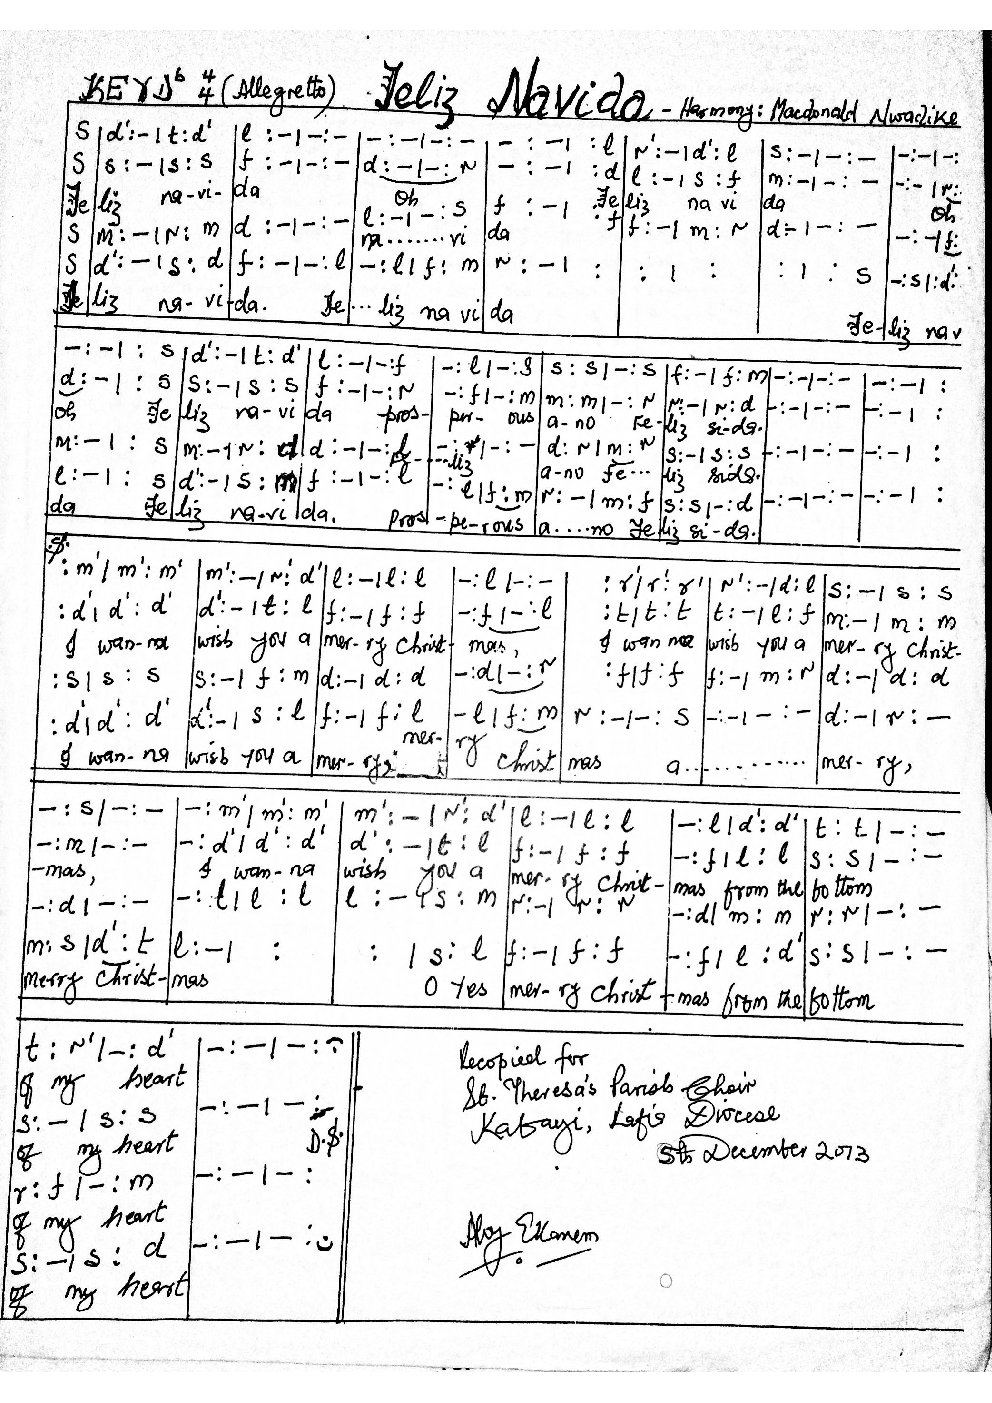 KEY Db 4/4 (Allegretto) Feliz Navida - Harmony: Macdonald Nwadike
S | d':-| t:d' | l :-|-:- | -:-|-:- | - : -| :l | r':-|d':l | s:-|-:- | -:-|-:
S | s:-|s:s | f :-|-:- | d:-|-:r | - : -| :d | l:-|s:f | m:-|-:- | -:-|r:
Fe liz na-vi-da Oh Fe liz na vi da Oh
S | m:-|r:m | d :-|-:- | l:-|-:s | f : -| :f | f:-|m:r | d:-|-:- | -:-|f:
na........vi da
S | d':-|s:d | f:-|-:l | -:l|f:m | r:-| : | : | : | : | :s | -:s|:d'
Fe liz na-vi-da. Fe...liz na vi da Fe-liz nav
-:-| : s | d':-|t:d' | l:-|-:f | -:l|-:s | s:s|-:s | f:-|f:m | -:-|-:- | -:-| :
d:-| : s | s:-|s:s | f:-|-:r | -:f|-:m | m:m|-:r | r:-|r:d | -:-|-:- | -:-| :
oh Fe liz na-vi da pros-per-ous a-no Fe-liz si-da.
m:-| : s | m:-|r:d | d:-|-:d | -:*|-:- | d:r|m:r | s:-|s:s | -:-|-:- | -:-| :
a-no fe... liz sida.
l:-| : s | d':-|s:m | f:-|-:l | -:l|f:m | r:-|m:f | s:s|-:d | -:-|-:- | -:-| :
da Fe liz na-vi da. Pros-pe-rous a....no Feliz si-da.
:m'|m':m' | m':-|r':d' | l:-|l:l | -:l|-:- | :r'|r':r' | r':-|d:l | s:-|s:s
:d'|d':d' | d':-|t:l | f:-|f:f | -:f|-:l | :t|t:t | t:-|l:f | m:-|m:m
I wan-na wish you a mer-ry Christ-mas, I wan na wish you a mer-ry Christ-
:s|s:s | s:-|f:m | d:-|d:d | -:d|-:r | :f|f:f | f:-|m:r | d:-|d:d
:d'|d':d' | d':-|s:l | f:-|f:l | -l|f:m | r:-|-:s | -:-|-:- | d:-|r:-
I wan-na wish you a mer-ry; mer-ry Christ mas a............ mer-ry,
-:s|-:- | -:m'|m':m' | m':-|r':d' | l:-|l:l | -:l|d':d' | t:t|-:-
-:m|-:- | -:d'|d':d' | d':-|t:l | f:-|f:f | -:f|l:l | s:s|-:-
-mas, I wan-na wish you a mer-ry Christ-mas from the bottom
-:d|-:- | -:l|l:l | l:-|s:m | r:-|r:r | -:d|m:m | r:r|-:-
m:s|d':t | l:-| : | : |s:l | f:-|f:f | -:f|l:d' | s:s|-:-
merry Christ-mas O Yes mer-ry Christ-mas from the bottom
t:r'|-:d' | -:-|-:
of my heart
s:-|s:s | -:-|-:-
of my heart D.S.
r:f|-:m | -:-|-:
of my heart
s:-|s:d | -:-|-:
of my heart
Recopied for
St. Theresa's Parish Choir
Katayi, Lafia Diocese
5th December 2013
Aloy Ekanem